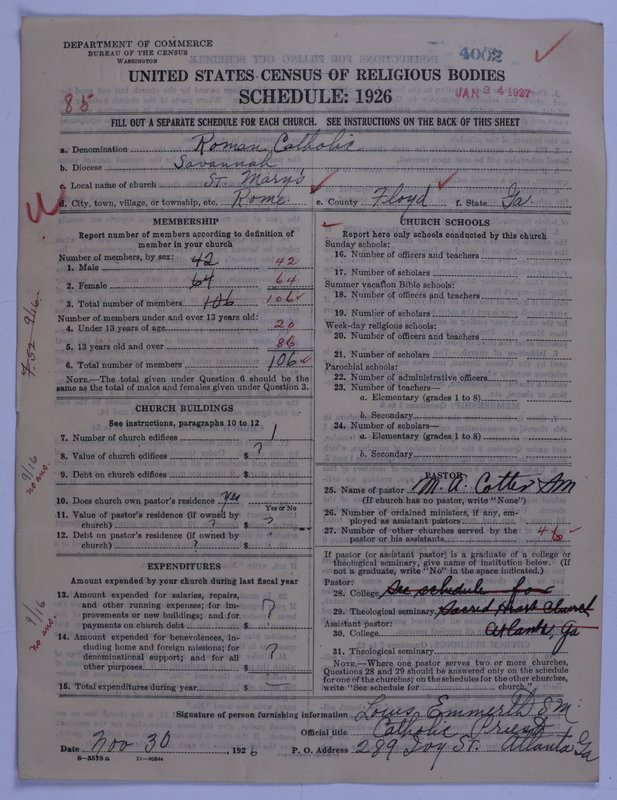 DEPARTMENT OF COMMERCE
BUREAU OF THE CENSUS
WASHINGTON
4002
UNITED STATES CENSUS OF RELIGIOUS BODIES
SCHEDULE: 1926
JAN 24 1927
85
FILL OUT A SEPARATE SCHEDULE FOR EACH CHURCH. SEE INSTRUCTIONS ON THE BACK OF THIS SHEET
a. Denomination Roman Catholic
b. Diocese Savannah
c. Local name of church St. Mary's
d. City, town, village, or township, etc. Rome e. County Floyd f. State Ga.
MEMBERSHIP
Report number of members according to definition of
member in your church
Number of members, by sex:
1. Male 42 42
2. Female 64 64
3. Total number of members 106 106
Number of members under and over 13 years old:
4. Under 13 years of age 20
5. 13 years old and over 86
6. Total number of members 106
NOTE.—The total given under Question 6 should be the
same as the total of males and females given under Question 3.
CHURCH BUILDINGS
See instructions, paragraphs 10 to 12
7. Number of church edifices 1
8. Value of church edifices $ ?
9. Debt on church edifices $
10. Does church own pastor's residence Yes
Yes or No
11. Value of pastor's residence (if owned by
church) ? $ ?
12. Debt on pastor's residence (if owned by
church) ? $ ?
EXPENDITURES
Amount expended by your church during last fiscal year
13. Amount expended for salaries, repairs,
and other running expenses; for im-
provements or new buildings; and for
payments on church debt $ ?
14. Amount expended for benevolences, in-
cluding home and foreign missions; for
denominational support; and for all
other purposes $ ?
15. Total expenditures during year $
CHURCH SCHOOLS
Report here only schools conducted by this church
Sunday schools:
16. Number of officers and teachers
17. Number of scholars
Summer vacation Bible schools:
18. Number of officers and teachers
19. Number of scholars
Week-day religious schools:
20. Number of officers and teachers
21. Number of scholars
Parochial schools:
22. Number of administrative officers
23. Number of teachers—
a. Elementary (grades 1 to 8)
b. Secondary
24. Number of scholars—
a. Elementary (grades 1 to 8)
b. Secondary
PASTOR
25. Name of pastor M. A. Cotter SM
(If church has no pastor, write "None")
26. Number of ordained ministers, if any, em-
ployed as assistant pastors
27. Number of other churches served by the
pastor or his assistants
If pastor (or assistant pastor) is a graduate of a college or
theological seminary, give name of institution below. (If
not a graduate, write "No" in the space indicated.)
Pastor:
28. College See schedule for
29. Theological seminary Sacred Heart Church
Assistant pastor: Atlanta, Ga
30. College
31. Theological seminary
NOTE.—Where one pastor serves two or more churches,
Questions 28 and 29 should be answered only on the schedule
for one of the churches; on the schedules for the other churches,
write "See schedule for church."
Signature of person furnishing information Louis Emmerth S.M.
Official title Catholic Priest
Date Nov 30, 1926 P. O. Address 289 Ivy St. Atlanta Ga
8—5578 a
9/16
no ans.
9/16
no ans.